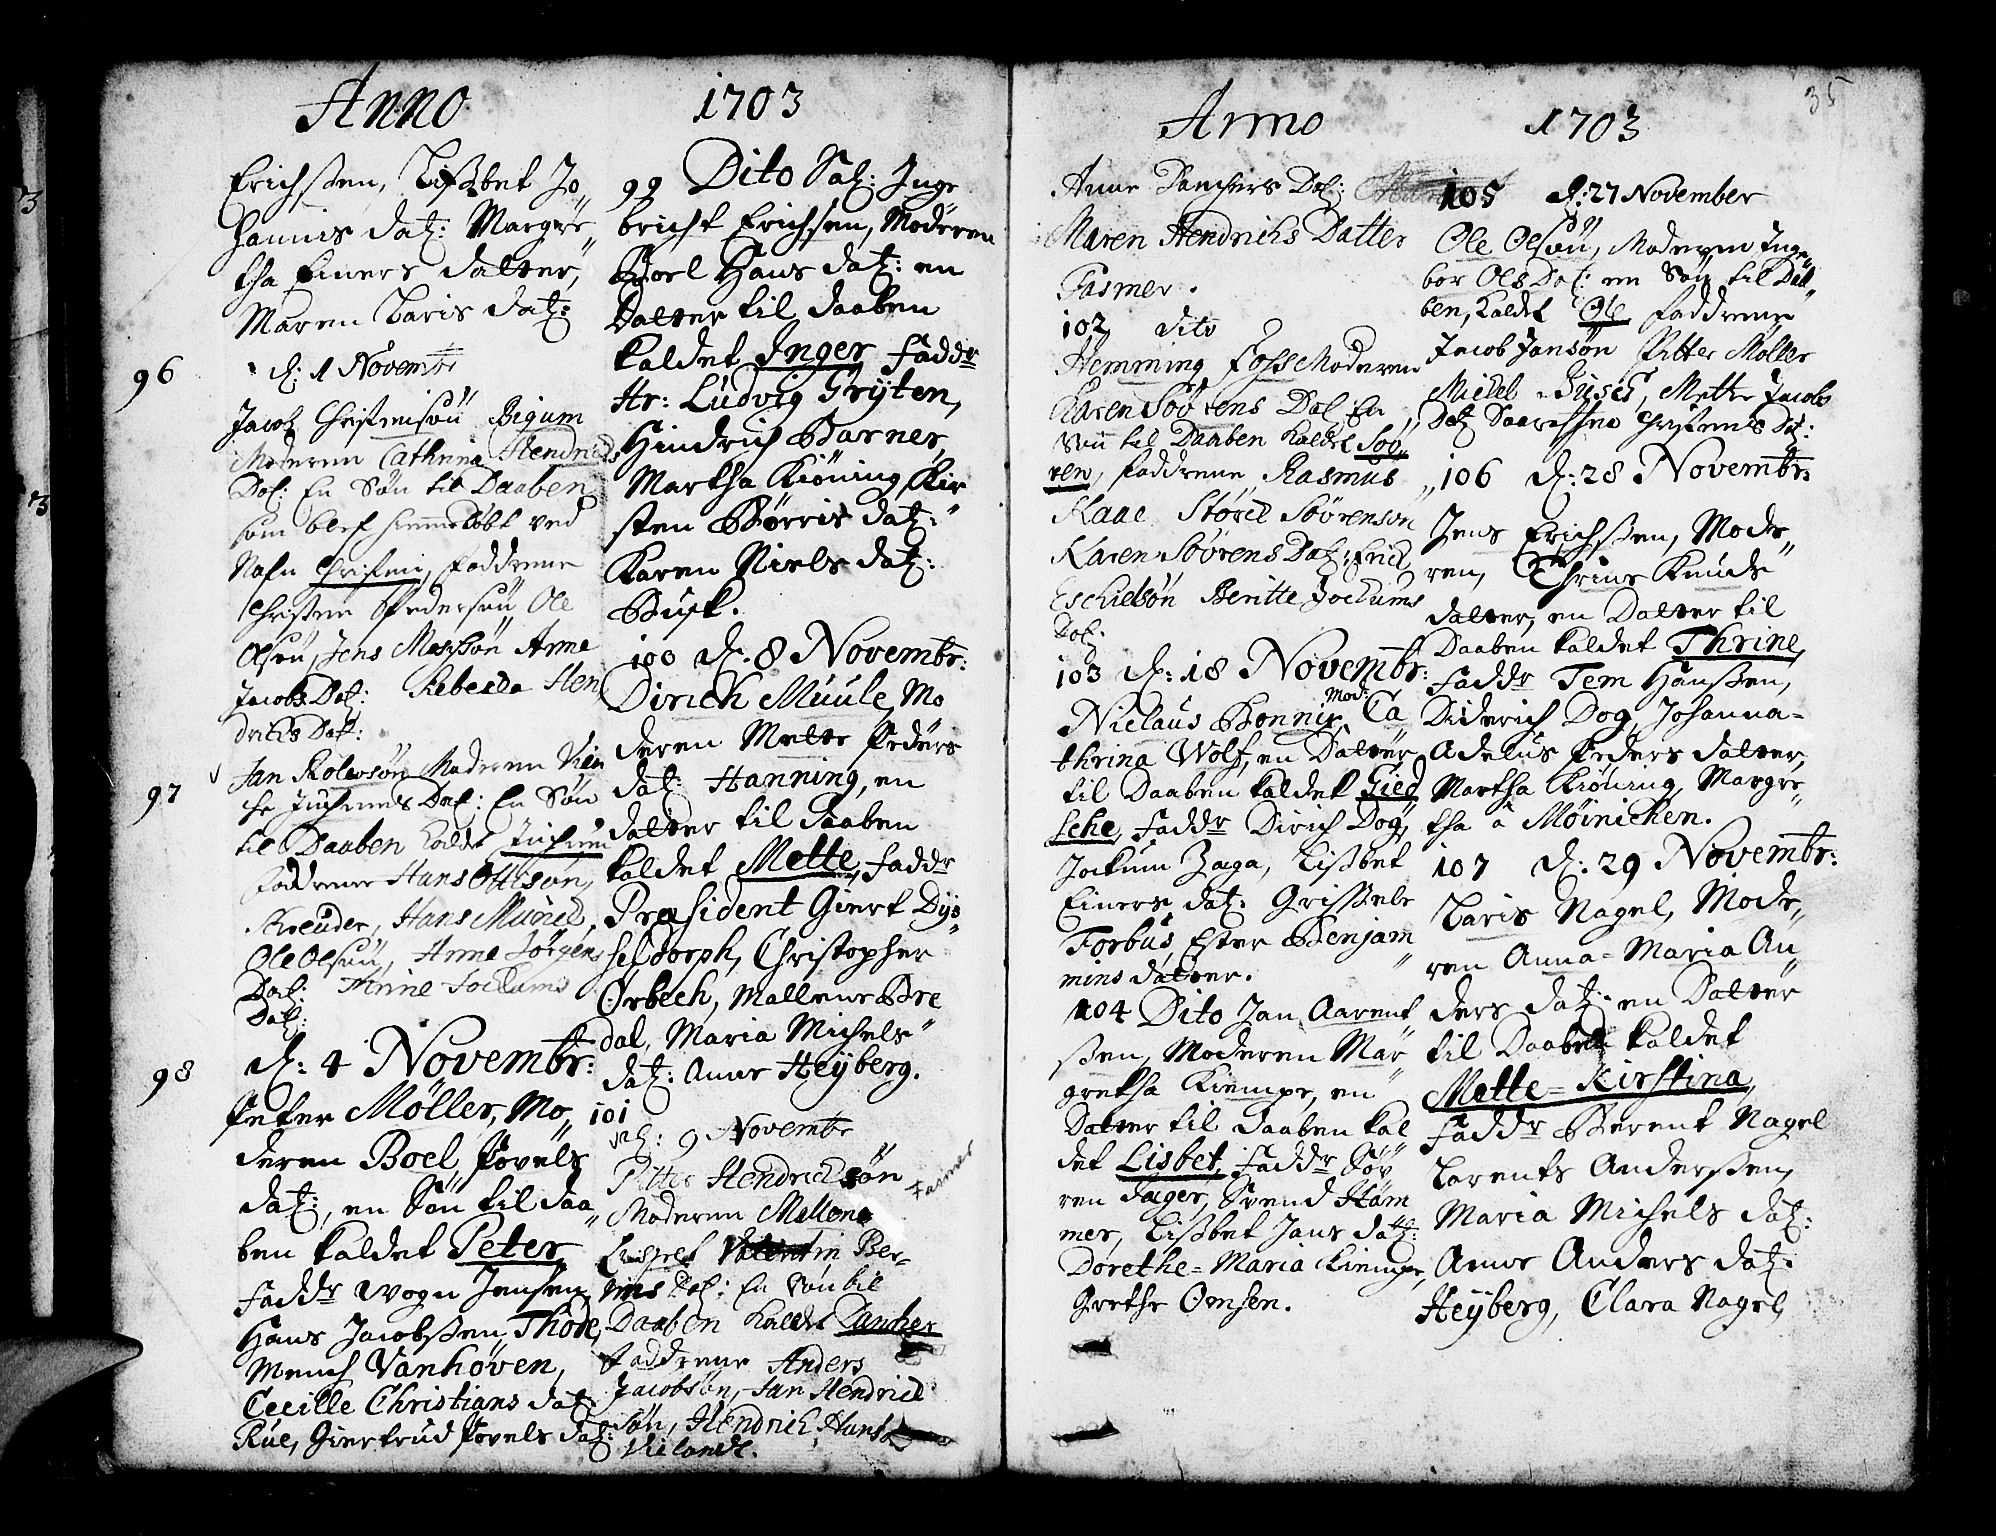 Anno 1703
Erichssen, Lissbet Jo„
hannis datz: Margre„
tha Einers datter,
Maren Laris datz:
96 d: 1 Novembr
Jacob Christensøn Bigum
Moderen Cathrina Hendrichs
Dat: En Søn til Daaben
som blef hiemedøbt ved
Nafn Christen, Faddrene
Christen Pedersøn, Ole
Olsøn, Jens Madssøn Anne
Jacobs Dat: Rebecka Hen
drichs Datt:
97 Jan Rolevsøn Moderen
Dat: En Søn
til Daaben kaldet Jochum
Faddrene Hans Ottisøn,
Skreuder, Hans Munch,
Ole Olsøn, Anne Jørgens
Dat: Thrine Jockums
Dat:
98 d: 4 Novembr:
Peter Møller, Mo„
deren Boel Povels
datz:, en Søn til daa„
ben kaldet Peter,
Faddr Wogn Jensen,
Hans Jacobssen, Thode,
Menich Vanhøven,
Cecille Christians datz:
Rue, Giertrud Povels datz:
99 Dito Sal: Inge
bricht Erichsen, Moderen
Boel Hans datz: en
Datter til daaben
kaldet Inger Faddr
Hr: Ludvig Gryten,
Hindrich Barner,
Martha Kiöning, Kir
sten Børris datz:
Karen Niels datz:
Busk.
100 d. 8 Novembr:
Dirich Muule, Mo
deren Mette Peders
datz: Hanning, en
datter til daaben
kaldet Mette, Faddr
Præsident Giert Dys„
seldorph, Christopher
Ørbech, Mallene Bre
dal, Maria Michels
datz: Anne Heyberg.
101
d: 9 Novembr
Pitter Hendrichsøn Fasmer
Moderen Mallene
Ber-
nis Dat: En Søn til
Daaben kaldet Dancher
Faddrene Anders
Jacobsøn, Jan Hendrich
søn, Hendrich Hans
Vielandt.
Anno 1703
35
Anne Danchers Dat:
Maren Hendrichs Datter
Fasmer.
102 dito
Hemming Foss Moderen
Karen Sørens Dat En
Søn til Daaben kaldet Søv„
ren, Faddrene, Rasmus
Kaae Størch Søvrenson
Karen Søvrens Datz: Erich
Eschielsøn Beritte Jockums
Dat:
103 d: 18 Novembr:
Niclaus Bonnix, Mod: Ca
thrina Wolf, en Datter
til Daaben kaldet Gied
sche, Faddr Dirich Dog,
Jockum Zaga, Lissbet
Einers datz: Grissele
Forbus, Ester Benjam„
mins datter.
104 Dito Jan Aarent
ssen, Moderen Mar„
gretha Kiempe, en
Datter til daaben kal
det Lisbet, Faddr Søv
ren Jager, Svend Ham
mer, Lissbet Jans datz:
Dorethe=Maria Kiempe,
Grethe Omsen.
105 d: 27 November
Ole Olsøn, Moderen Inge„
bor Ols Dat: en Søn til Daa„
ben, kaldet Ole Faddrene
Jacob Jansøn Pitter Møller
Michel Busch, Mette Jacobs
Datz Christens Datz:
106 d: 28 Novembr:
Jens Erichssen, Mode„
ren, Thrine Knuds
datter, en Datter til
Daaben kaldet Thrine,
Faddr Tem Hanssen,
Diderich Dog, Johanna=
Adelus Peders datter,
Martha Kiöning, Margre„
tha à Møinichen.
107 d: 29 Novembr:
Laris Nagel, Mode„
ren Anna=Maria An„
ders datz: en Datter
til Daaben kaldet
Mette=Kirstina,
Faddr Berent Nagel
Larents Anderssen,
Maria Michels datz:
Anne Anders datz:
Heyberg, Clara Nagel,